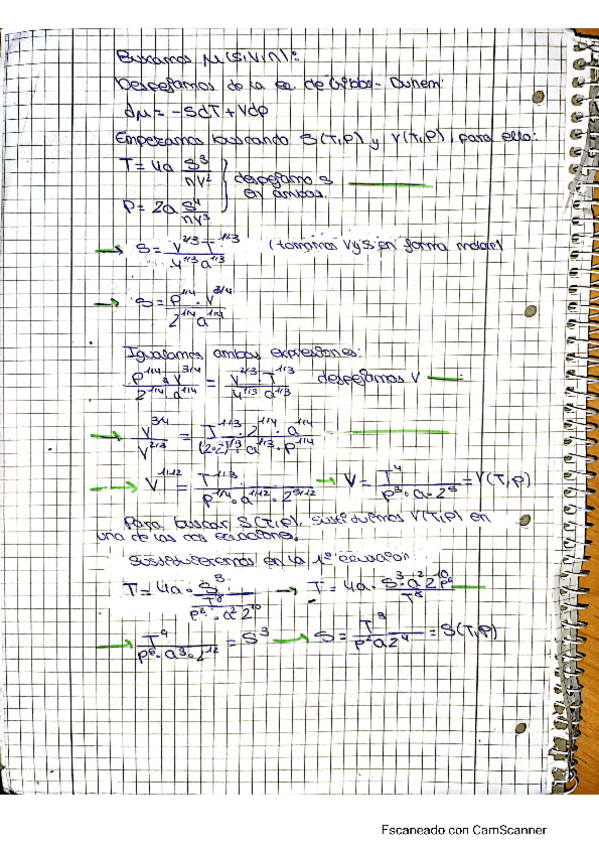 Buscamos μ(S,V,n):
Despejamos de la ec de Gibbs-Duhem:
dμ = -SdT + Vdp
Empezamos buscando S(T,P) y V(T,P), para ello:
T = 4a S³/nV² } despejamos S
P = 2a S⁴/nV³ } en ambas.
→ S = V^2/3 · T^1/3 / 4^1/3 · a^1/3 (tomamos V y S en forma molar)
→ S = P^1/4 · V^3/4 / 2^1/4 a^1/4
Igualamos ambas expresiones:
P^1/4 · V^3/4 / 2^1/4 a^1/4 = V^2/3 · T^1/3 / 4^1/3 a^1/3 despejamos V
→ V^3/4 / V^2/3 = T^1/3 · 2^1/4 · a^1/4 / (2·2)^1/3 · a^1/3 · P^1/4
→ V^1/12 = T^1/3 / P^1/4 · a^1/12 · 2^5/12 → V = T⁴ / P³ · a · 2⁵ = V(T,P)
Para buscar S(T,P), sustituimos V(T,P) en
una de las dos ecuaciones.
Sustituiremos en la 1ª ecuación:
T = 4a · S³ / (T⁸ / P⁶ · a² 2¹⁰) → T = 4a · S³ · a² 2¹⁰ P⁶ / T⁸
→ T⁹ / P⁶ · a³ · 2¹² = S³ → S = T³ / P² a 2⁴ = S(T,P)
Escaneado con CamScanner